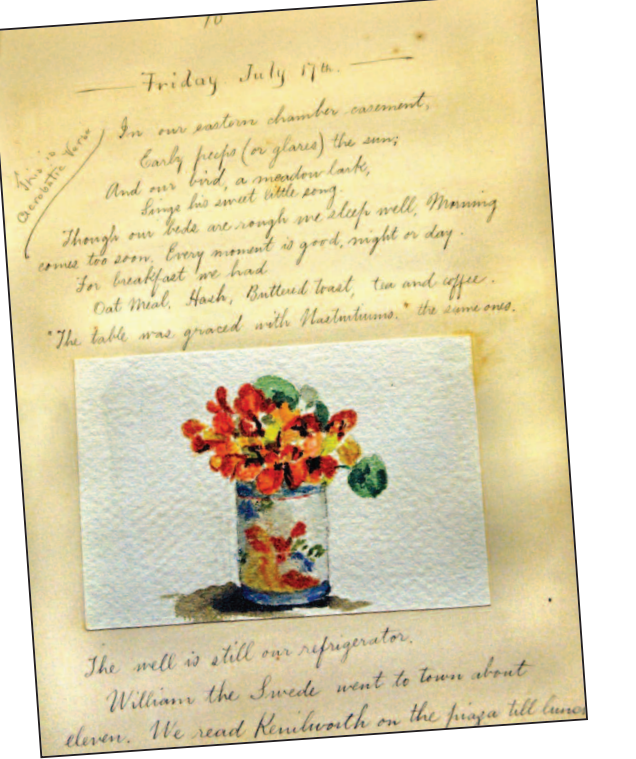 10
Friday July 17th.
This is
Acrobatic Verse
In our eastern chamber casement,
Early peeps (or glares) the sun;
And our bird, a meadow lark,
Sings his sweet little song.
Though our beds are rough we sleep well, Morning
comes too soon. Every moment is good, night or day.
For breakfast we had
Oat Meal, Hash, Buttered toast, tea and coffee.
"The table was graced with Nasturtiums." the same ones.
The well is still our refrigerator.
William the Swede went to town about
eleven. We read Kenilworth on the piaza till